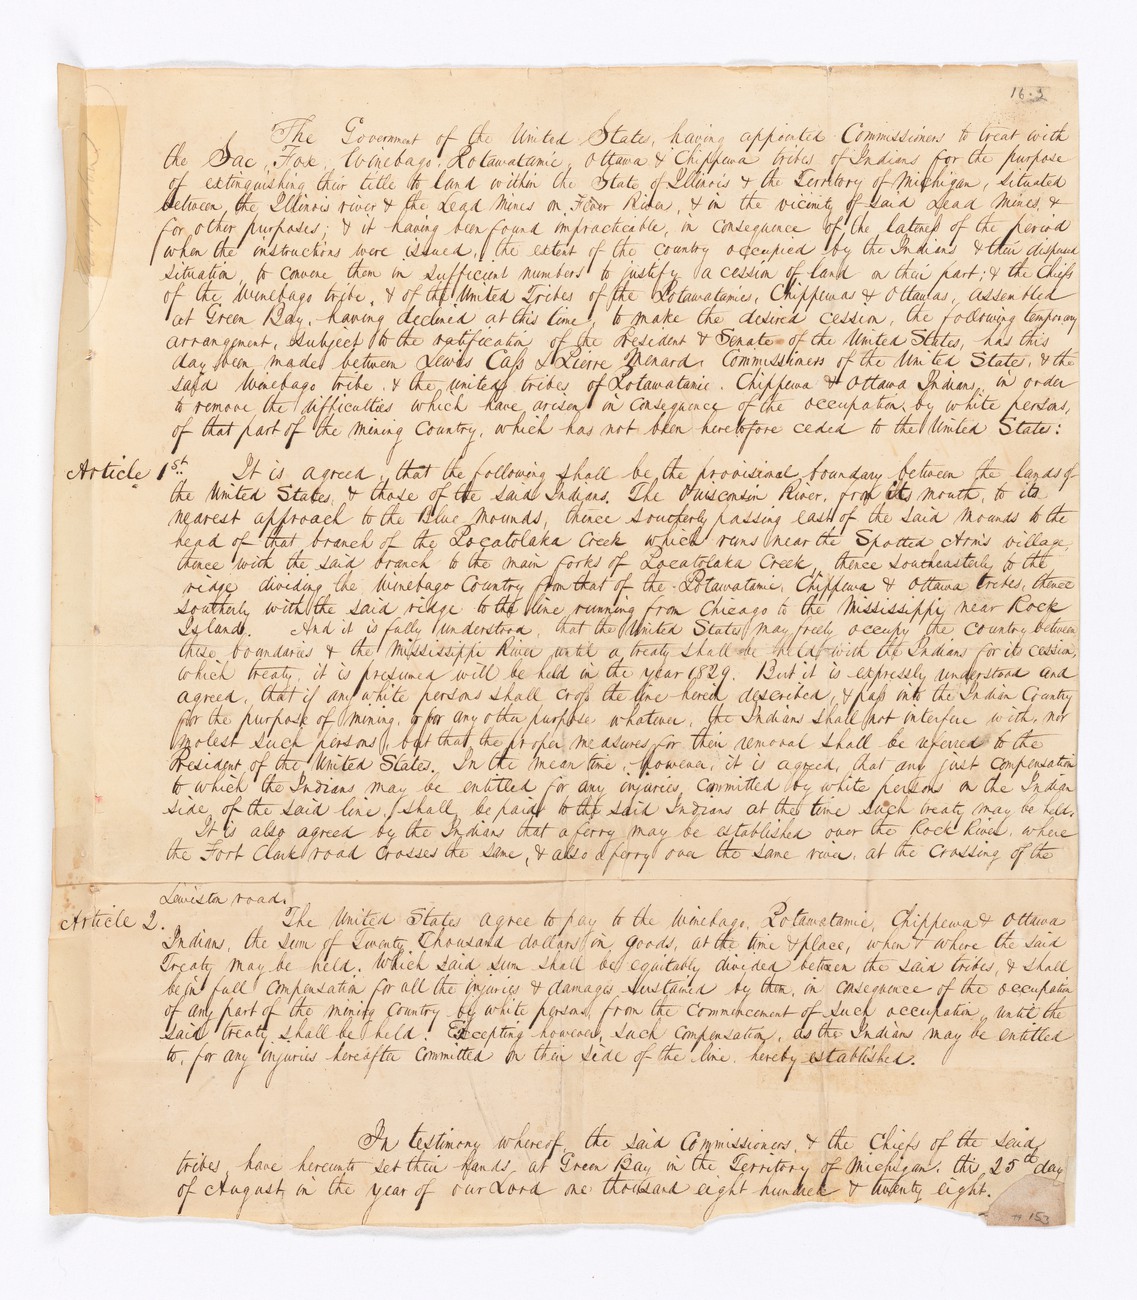 16.3
The Government of the United States, having appointed Commissioners to treat with
the Sac, Fox, Winebago, Potawatamie, Ottawa & Chippewa tribes of Indians for the purpose
of extinguishing their title to land within the State of Illinois & the Territory of Michigan, situated
between the Illinois river & the Lead Mines on Fever River, & in the vicinity of said Lead Mines, &
for other purposes; & it having been found impracticable, in consequence of the lateness of the period
when the instructions were issued, the extent of the country occupied by the Indians & their dispersed
situation, to convene them in sufficient numbers to justify a cession of land on their part; & the Chiefs
of the Winebago tribe, & of the United Tribes of the Potawatamies, Chippewas & Ottawas, assembled
at Green Bay, having declined at this time, to make the desired cession, the following temporary
arrangement, subject to the ratification of the President & Senate of the United States, has this
day been made between Lewis Cass & Pierre Menard, Commissioners of the United States, & the
said Winebago tribe, & the united tribes of Potawatamie, Chippewa & Ottawa Indians, in order
to remove the difficulties which have arisen in consequence of the occupation, by white persons,
of that part of the mining Country, which has not been heretofore ceded to the United States:
Article 1st. It is agreed, that the following shall be the provisional boundary between the lands of
the United States, & those of the said Indians. The Ouisconsin River, from its mouth, to its
nearest approach to the Blue Mounds, thence southerly passing east of the said mounds to the
head of that branch of the Pocatolaka Creek which runs near the Spotted Arm's village,
thence with the said branch to the main forks of Pocatolaka Creek, thence southeasterly to the
ridge dividing the Winebago Country from that of the Potawatamie, Chippewa & Ottawa tribes, thence
southerly with the said ridge to the line running from Chicago to the Mississippi, near Rock
Island. And it is fully understood, that the United States may freely occupy the country between
these boundaries & the Mississippi River until a treaty shall be held with the Indians for its cession,
which treaty, it is presumed will be held in the year 1829. But it is expressly understood and
agreed, that if any white persons shall cross the line herein described, & pass into the Indian Country
for the purpose of mining, or for any other purpose whatever, the Indians shall not interfere with, nor
molest such persons, but that the proper measures for their removal shall be referred to the
President of the United States. In the mean time, however, it is agreed, that any just compensation
to which the Indians may be entitled for any injuries, committed by white persons on the Indian
side of the said line, shall be paid to the said Indians at the time such treaty may be held.
It is also agreed by the Indians that a ferry may be established over the Rock River, where
the Fort Clark road crosses the same, & also a ferry over the same river, at the crossing of the
Lewiston road.
Article 2. The United States agree to pay to the Winebago, Potawatamie, Chippewa & Ottawa
Indians, the sum of Twenty Thousand dollars in goods, at the time & place, when & where the said
Treaty may be held. Which said sum shall be equitably divided between the said tribes, & shall
be in full compensation for all the injuries & damages sustained by them, in consequence of the occupation
of any part of the mining Country by white persons, from the commencement of such occupation, until the
said treaty shall be held. Excepting however, such compensation, as the Indians may be entitled
to, for any injuries hereafter committed on their side of the line hereby established.
In testimony whereof the said Commissioners, & the Chiefs of the said
tribes have hereunto set their hands at Green Bay in the Territory of Michigan, this 25th day
of August, in the year of our Lord one thousand eight hundred & twenty eight.
153